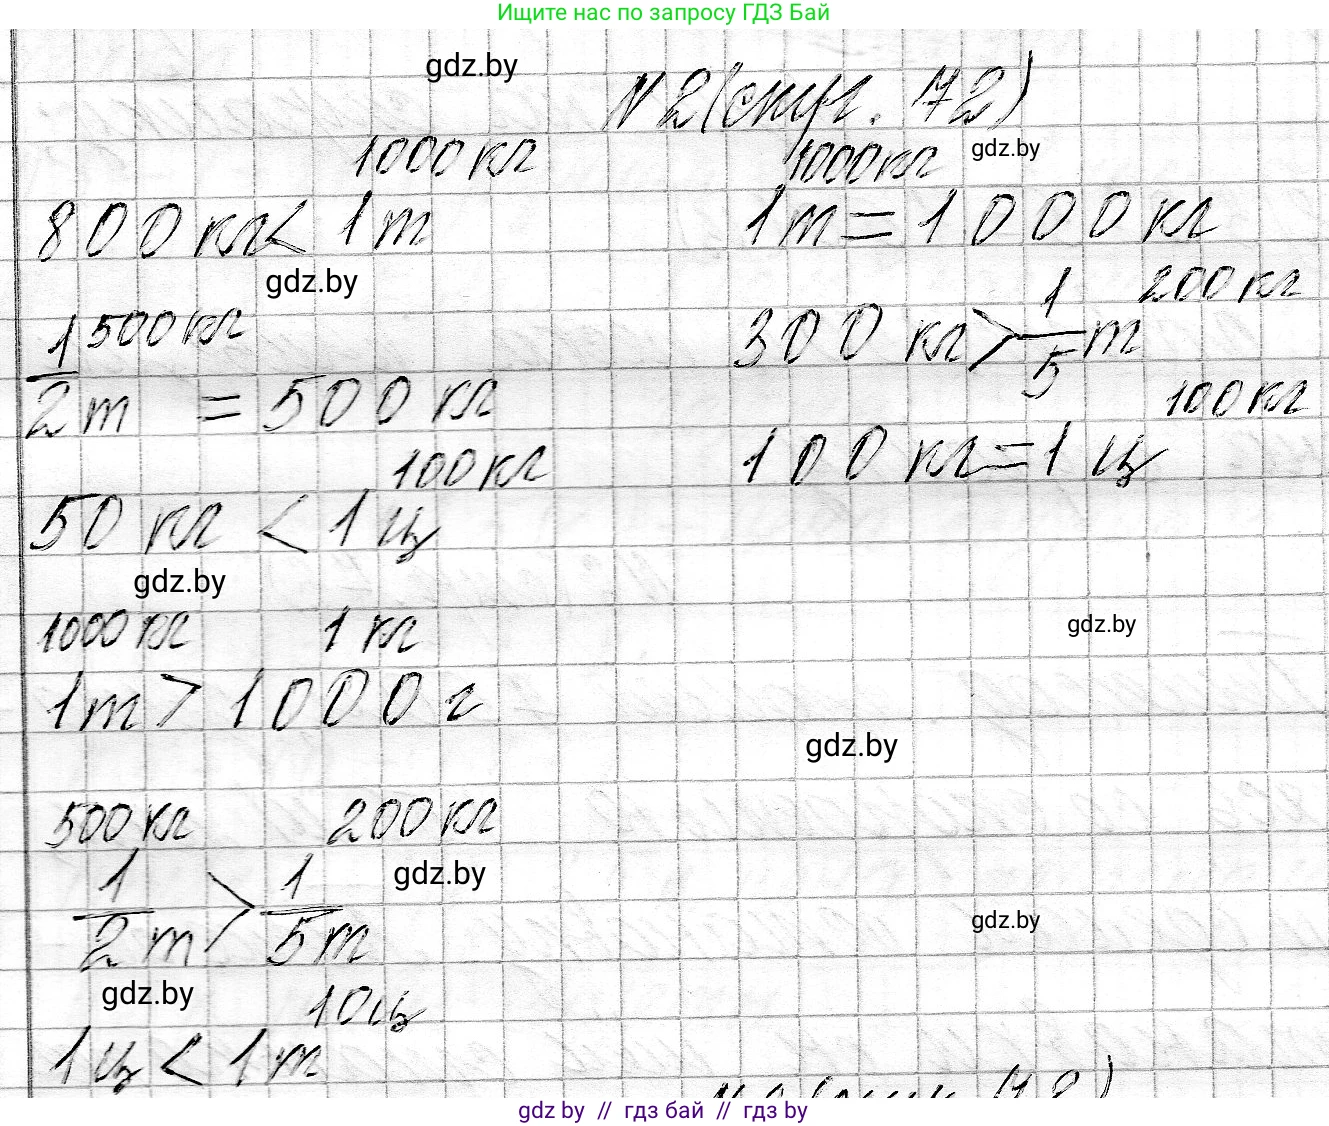 Ищите нас по запросу ГДЗ Бай
gdz.by
N 2 (стр. 72)
1000 кг
800 кг < 1 т
1000 кг
gdz.by
1 т = 1000 кг
gdz.by
500 кг
1/2 т = 500 кг
200 кг
300 кг > 1/5 т
100 кг
50 кг < 1 ц
100 кг
100 кг = 1 ц
gdz.by
1000 кг 1 кг
gdz.by
1 т > 1000 г
gdz.by
500 кг 200 кг
1/2 т > 1/5 т
gdz.by
gdz.by
gdz.by
10 ц
1 ц < 1 т
gdz by // гдз бай // гдз by